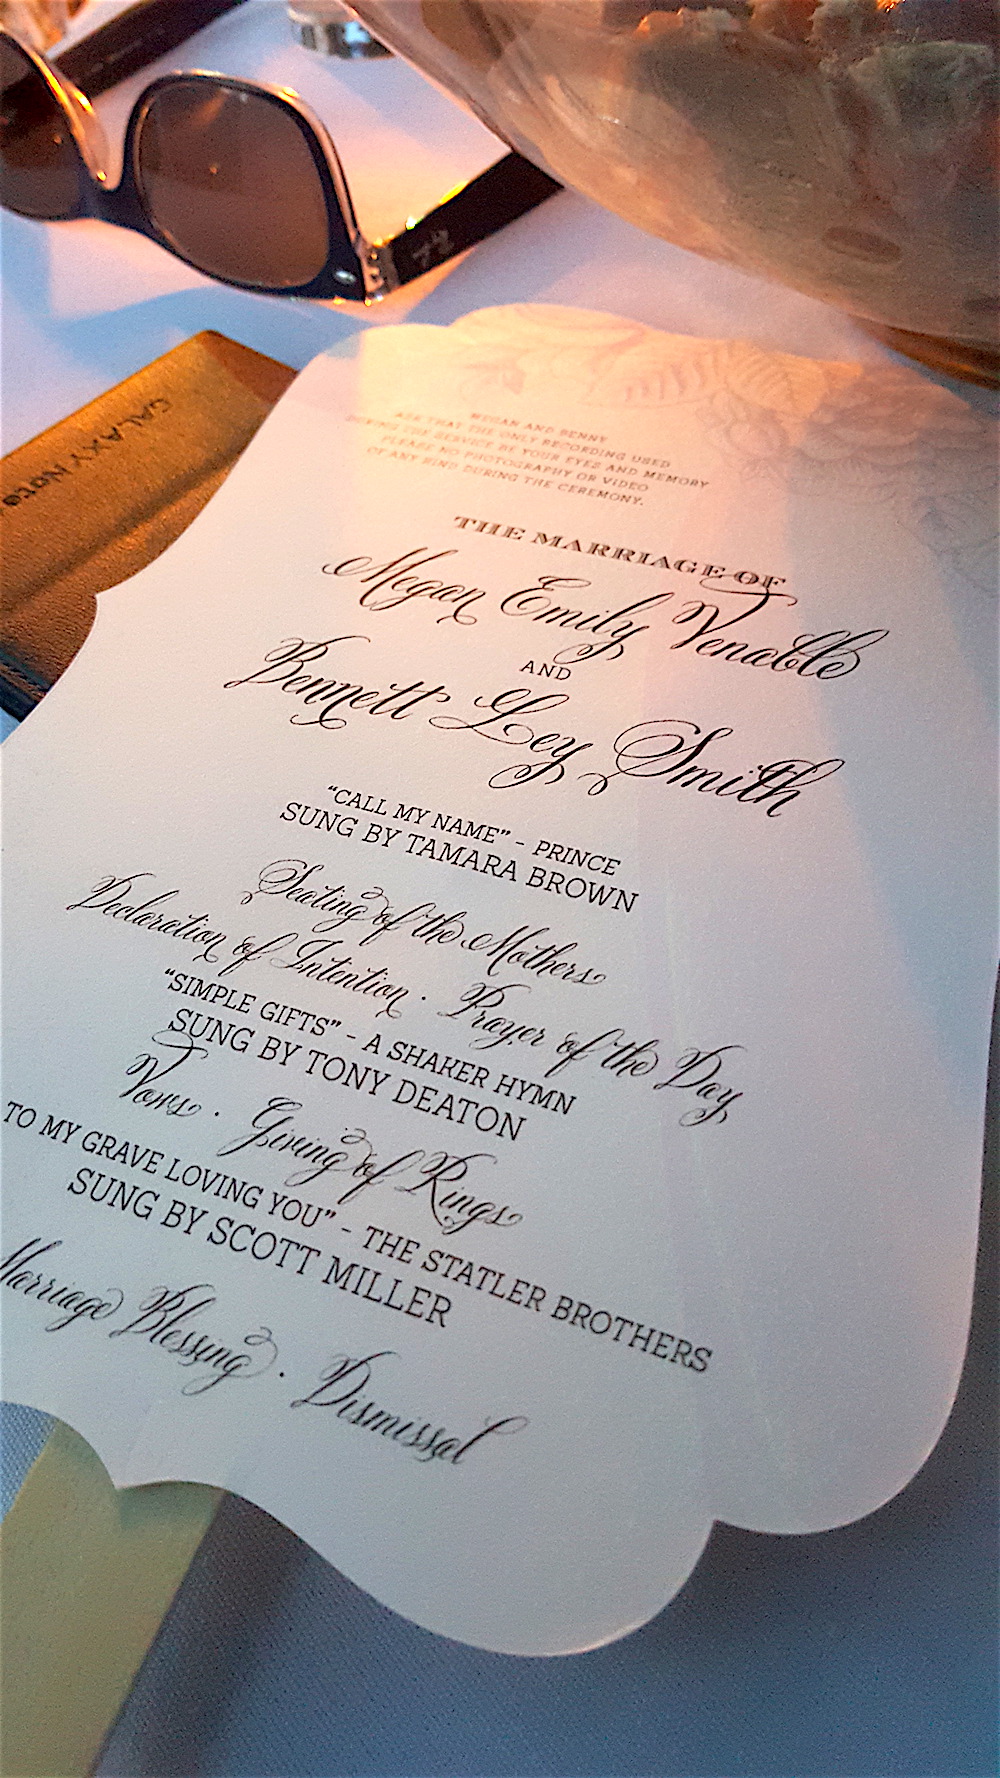 GALAXY Note
MEGAN AND BENNY
ASK THAT THE ONLY RECORDING USED
DURING THE SERVICE BE YOUR EYES AND MEMORY
PLEASE NO PHOTOGRAPHY OR VIDEO
OF ANY KIND DURING THE CEREMONY.
THE MARRIAGE OF
Megan Emily Venable
AND
Bennett Ley Smith
"CALL MY NAME" - PRINCE
SUNG BY TAMARA BROWN
Seating of the Mothers
Declaration of Intention · Prayer of the Day
"SIMPLE GIFTS" - A SHAKER HYMN
SUNG BY TONY DEATON
Vows · Giving of Rings
TO MY GRAVE LOVING YOU" - THE STATLER BROTHERS
SUNG BY SCOTT MILLER
Marriage Blessing · Dismissal